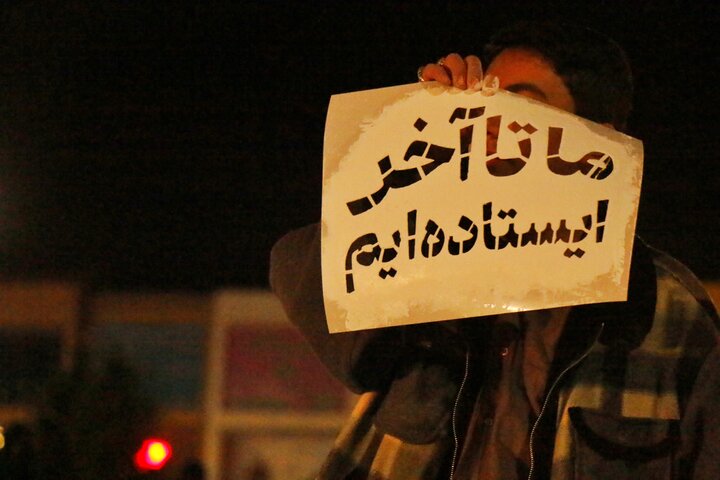 ما تا آخر
ایستاده‌ایم